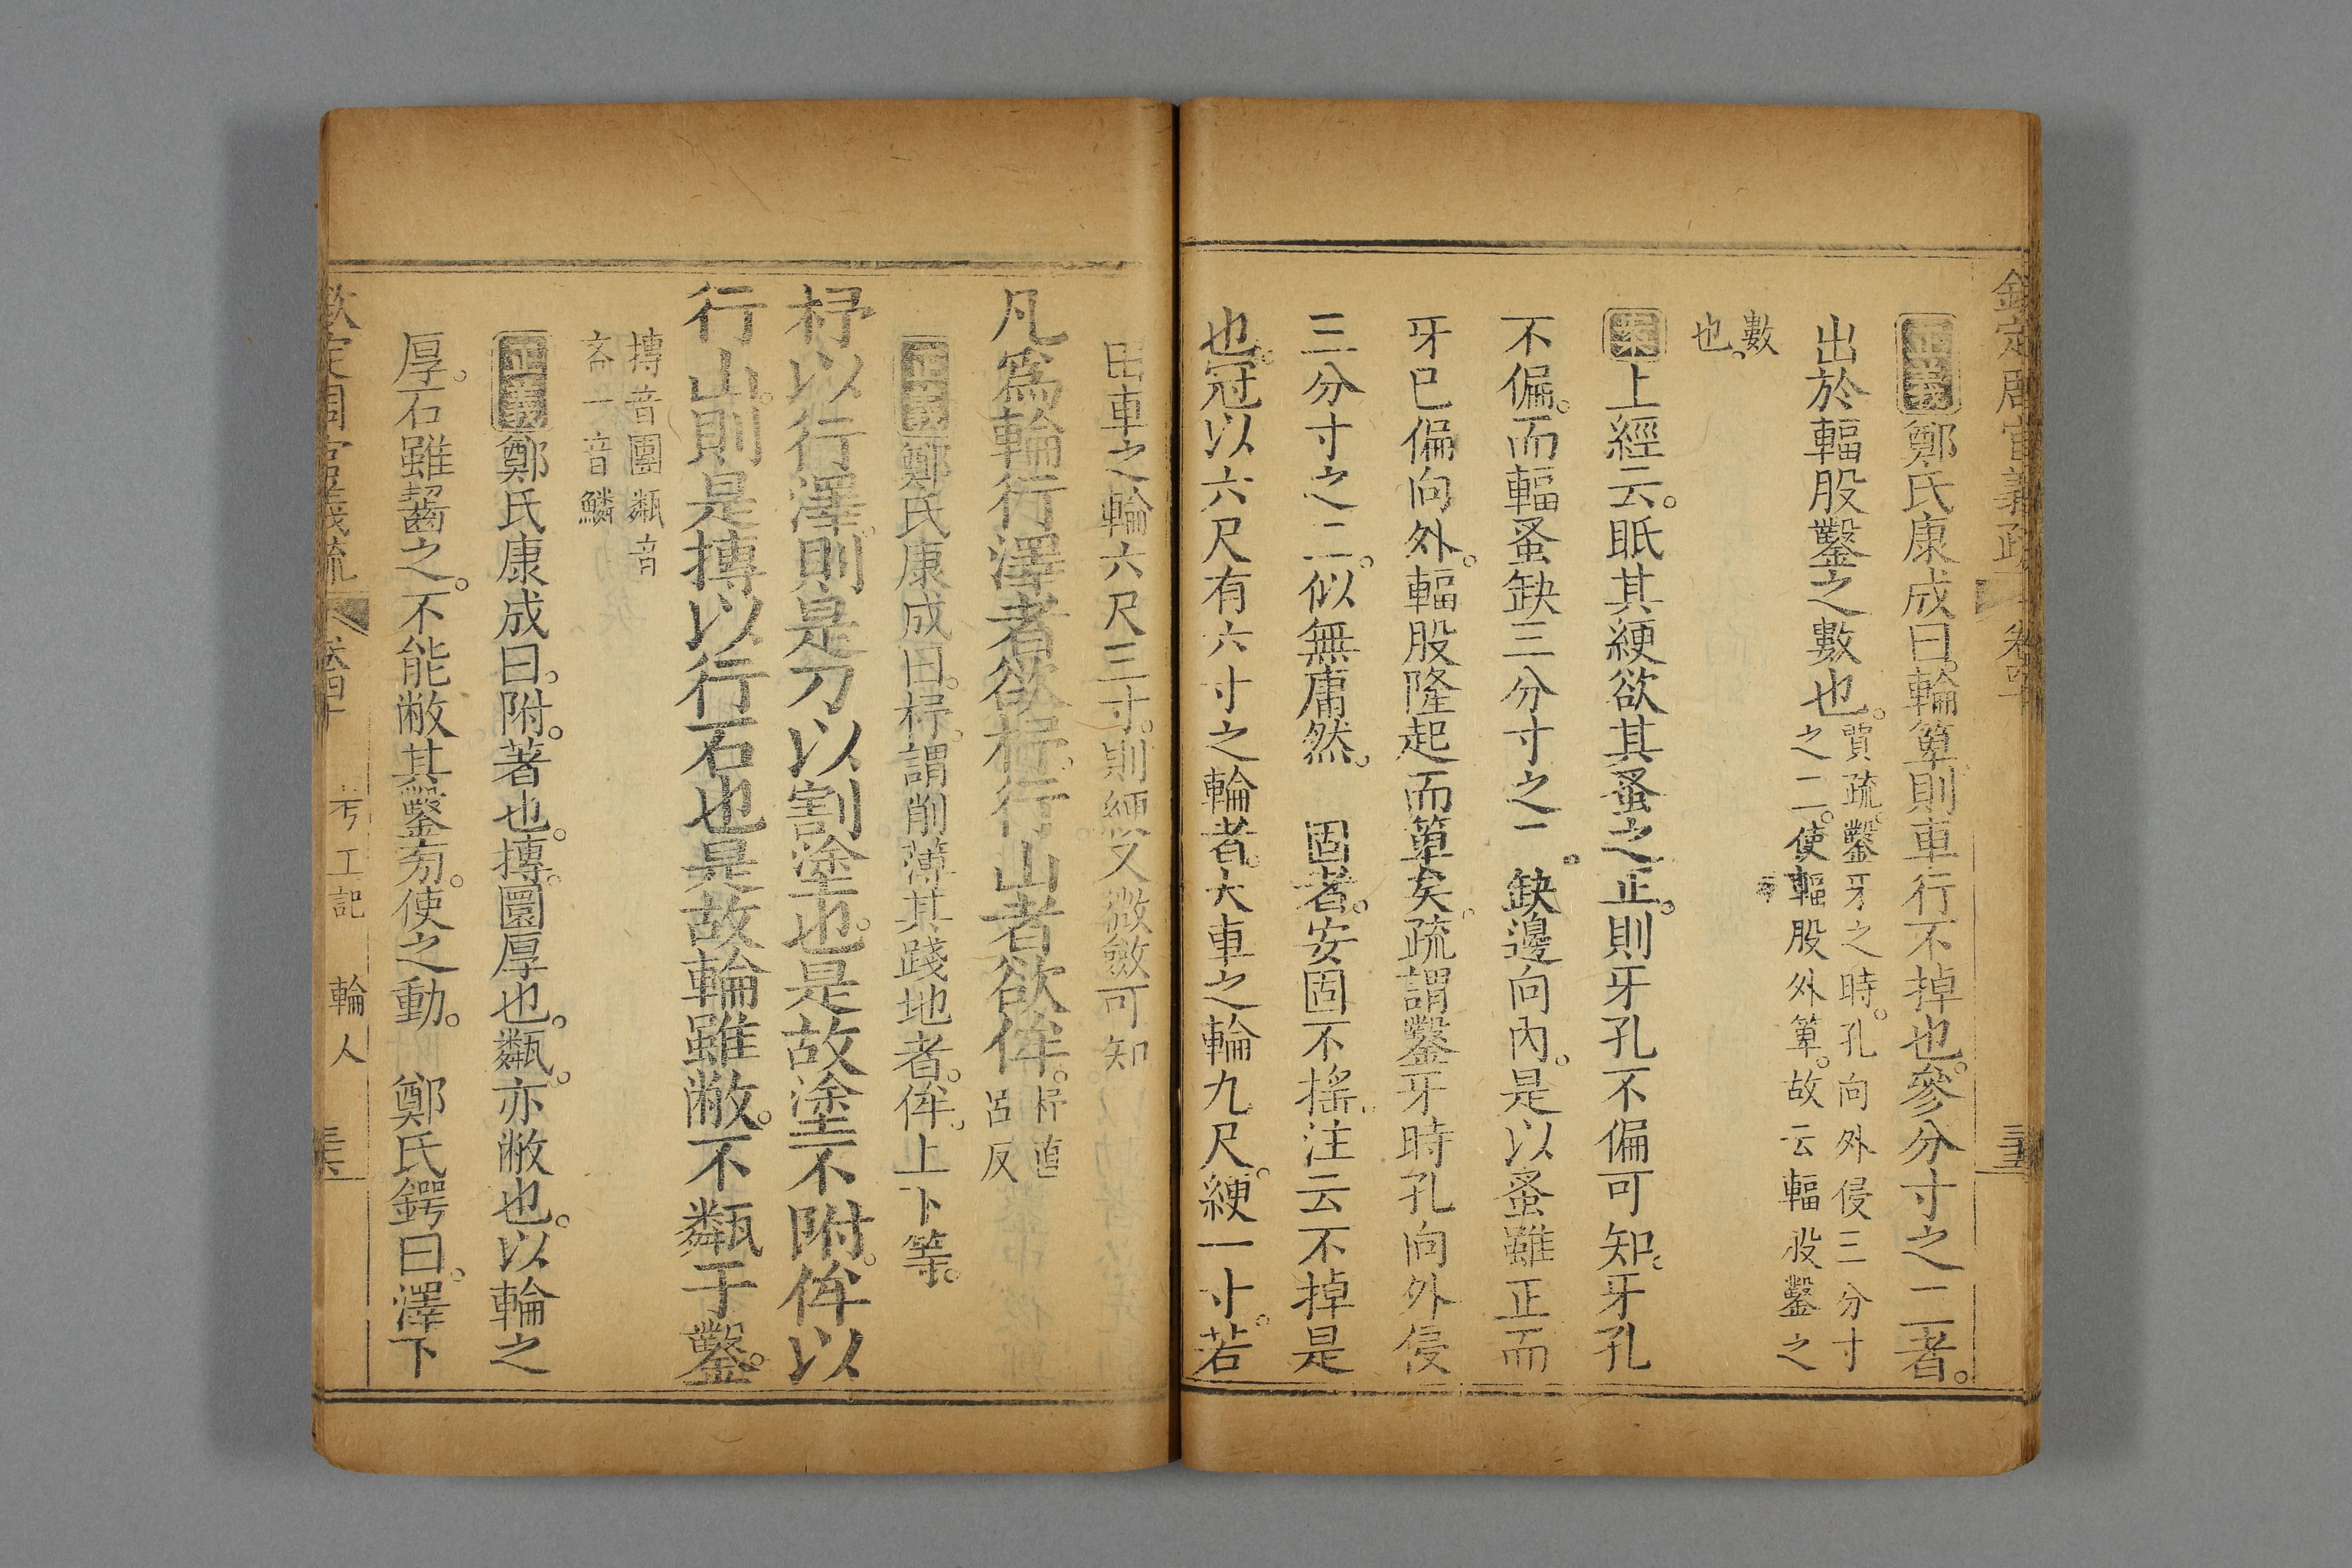 欽定周官義疏 卷四十 三五
正義鄭氏康成曰。輪箄則車行不掉也。參分寸之二者。
出於輻股鑿之數也。賈疏。鑿牙之時。孔向外侵三分寸
之二。使輻股外箄。故云輻股鑿之
數
也。
案上經云。眡其綆欲其蚤之正。則牙孔不偏可知。牙孔
不偏。而輻蚤缺三分寸之一。缺邊向內。是以蚤雖正而
牙已偏向外。輻股隆起而箄矣。疏謂鑿牙時孔向外侵
三分寸之二。似無庸然。 固者。安固不搖。注云不掉是
也。冠以六尺有六寸之輪者。大車之輪九尺。綆一寸。若
田車之輪六尺三寸。則綆又微斂可知
凡爲輪行澤者欲杼。行山者欲侔。杼直
呂反
正義鄭氏康成曰。杼。謂削薄其踐地者。侔。上下等。
杼以行澤。則是刀以割塗也。是故塗不附。侔以
行山。則是摶以行石也。是故輪雖敝。不甐于鑿。
摶音團甐音
吝一音鱗
正義鄭氏康成曰。附。著也。摶。圜厚也。甐。亦敝也。以輪之
厚。石雖齧之。不能敝其鑿旁。使之動。 鄭氏鍔曰。澤下
欽定周官義疏 卷四十 考工記 輪人